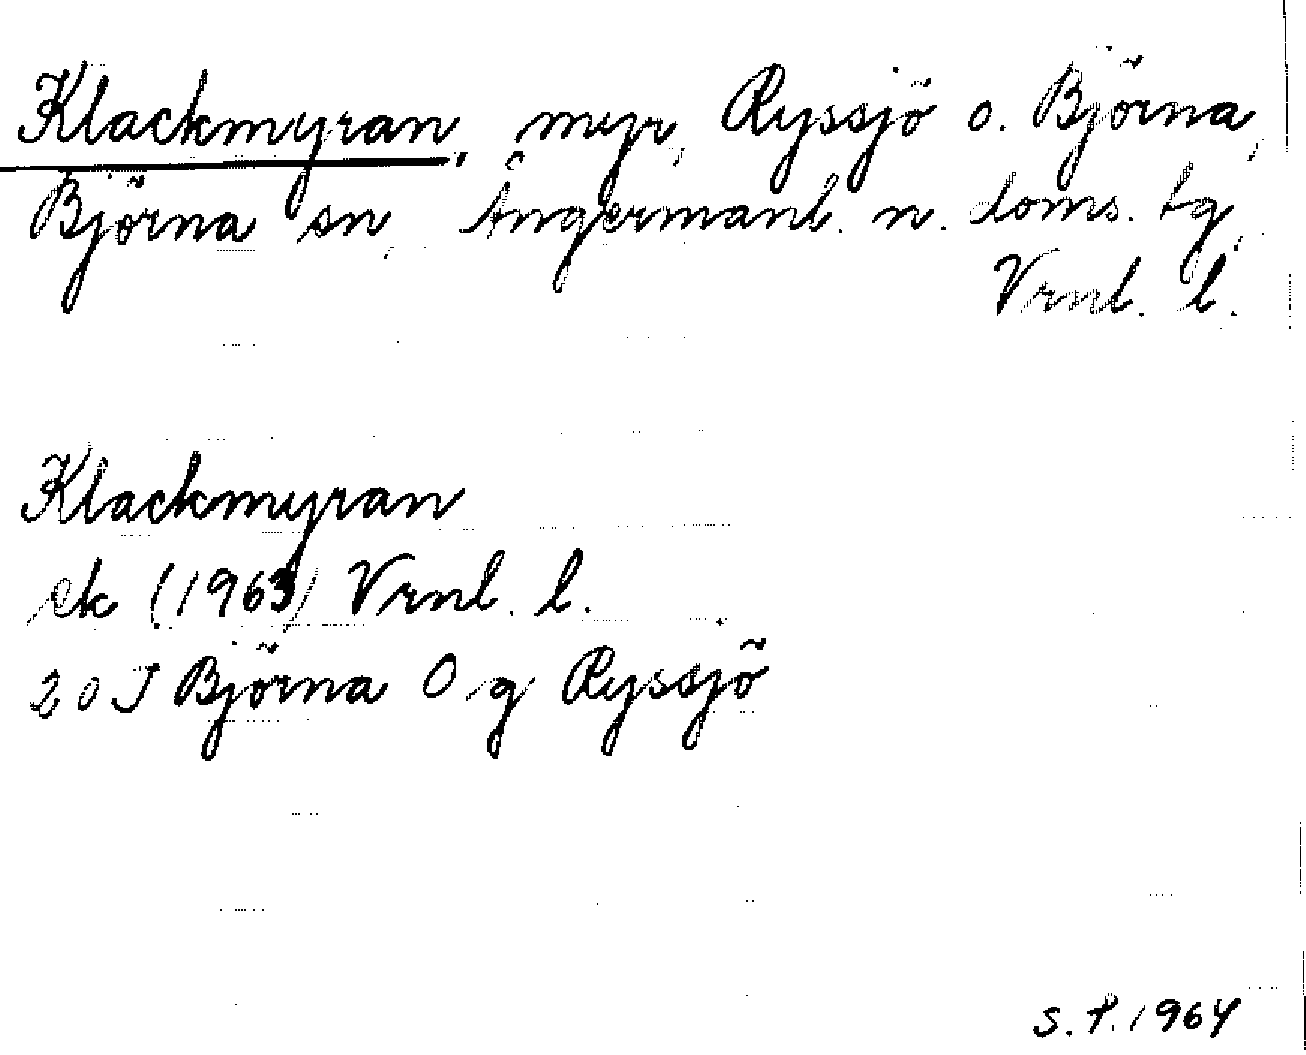 Klackmyran, myr, Ryssjö o. Björna,
Björna sn, Ångermanl. n. doms. tg,
Vrnl. l.
Klackmyran
ek (1963) Vrnl. l.
20 J Björna O g Ryssjö
S.P. 1964